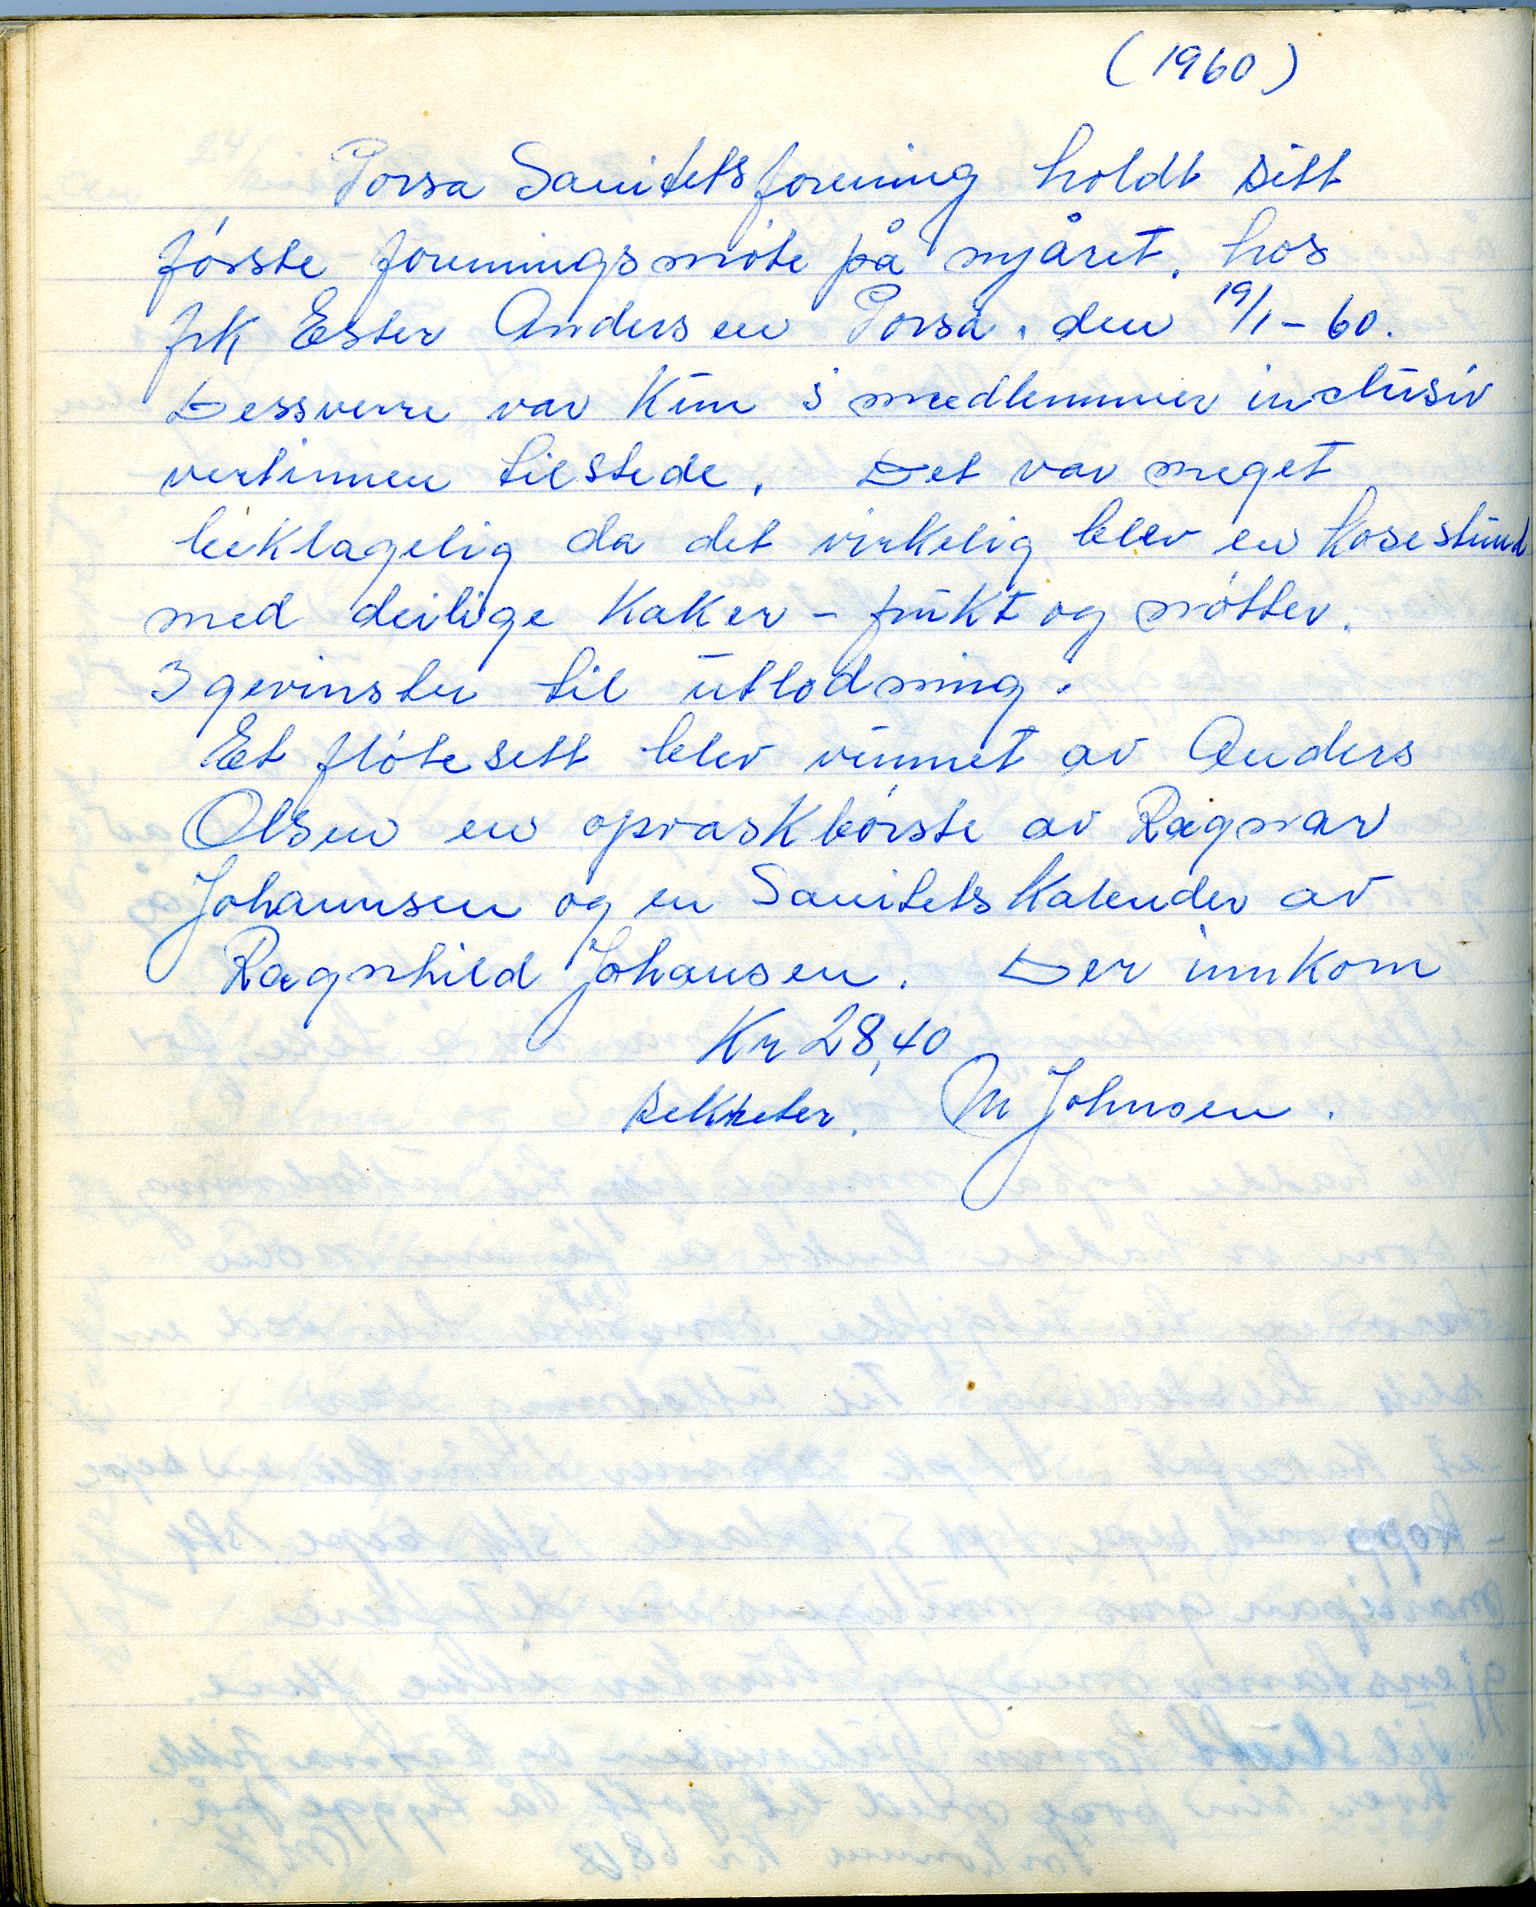 (1960)
Porsa Sanitetsforening holdt sitt
første foreningsmøte på nyåret, hos
frk Ester Andersen Porsa. den 19/1-60.
Dessverre var kun 5 medlemmer inclusiv
vertinnen tilstede. Det var meget
beklagelig da det virkelig blev en kosestund
med deilige kaker - frukt og nøtter.
3 gevinster til utlodning.
Et fløtesett blev vunnet av Anders
Olsen en opvaskbørste av Ragnar
Johannsen og en Sanitetskalender av
Ragnhild Johansen. Der innkom
Kr 28,40
sekreter. M Johnsen.